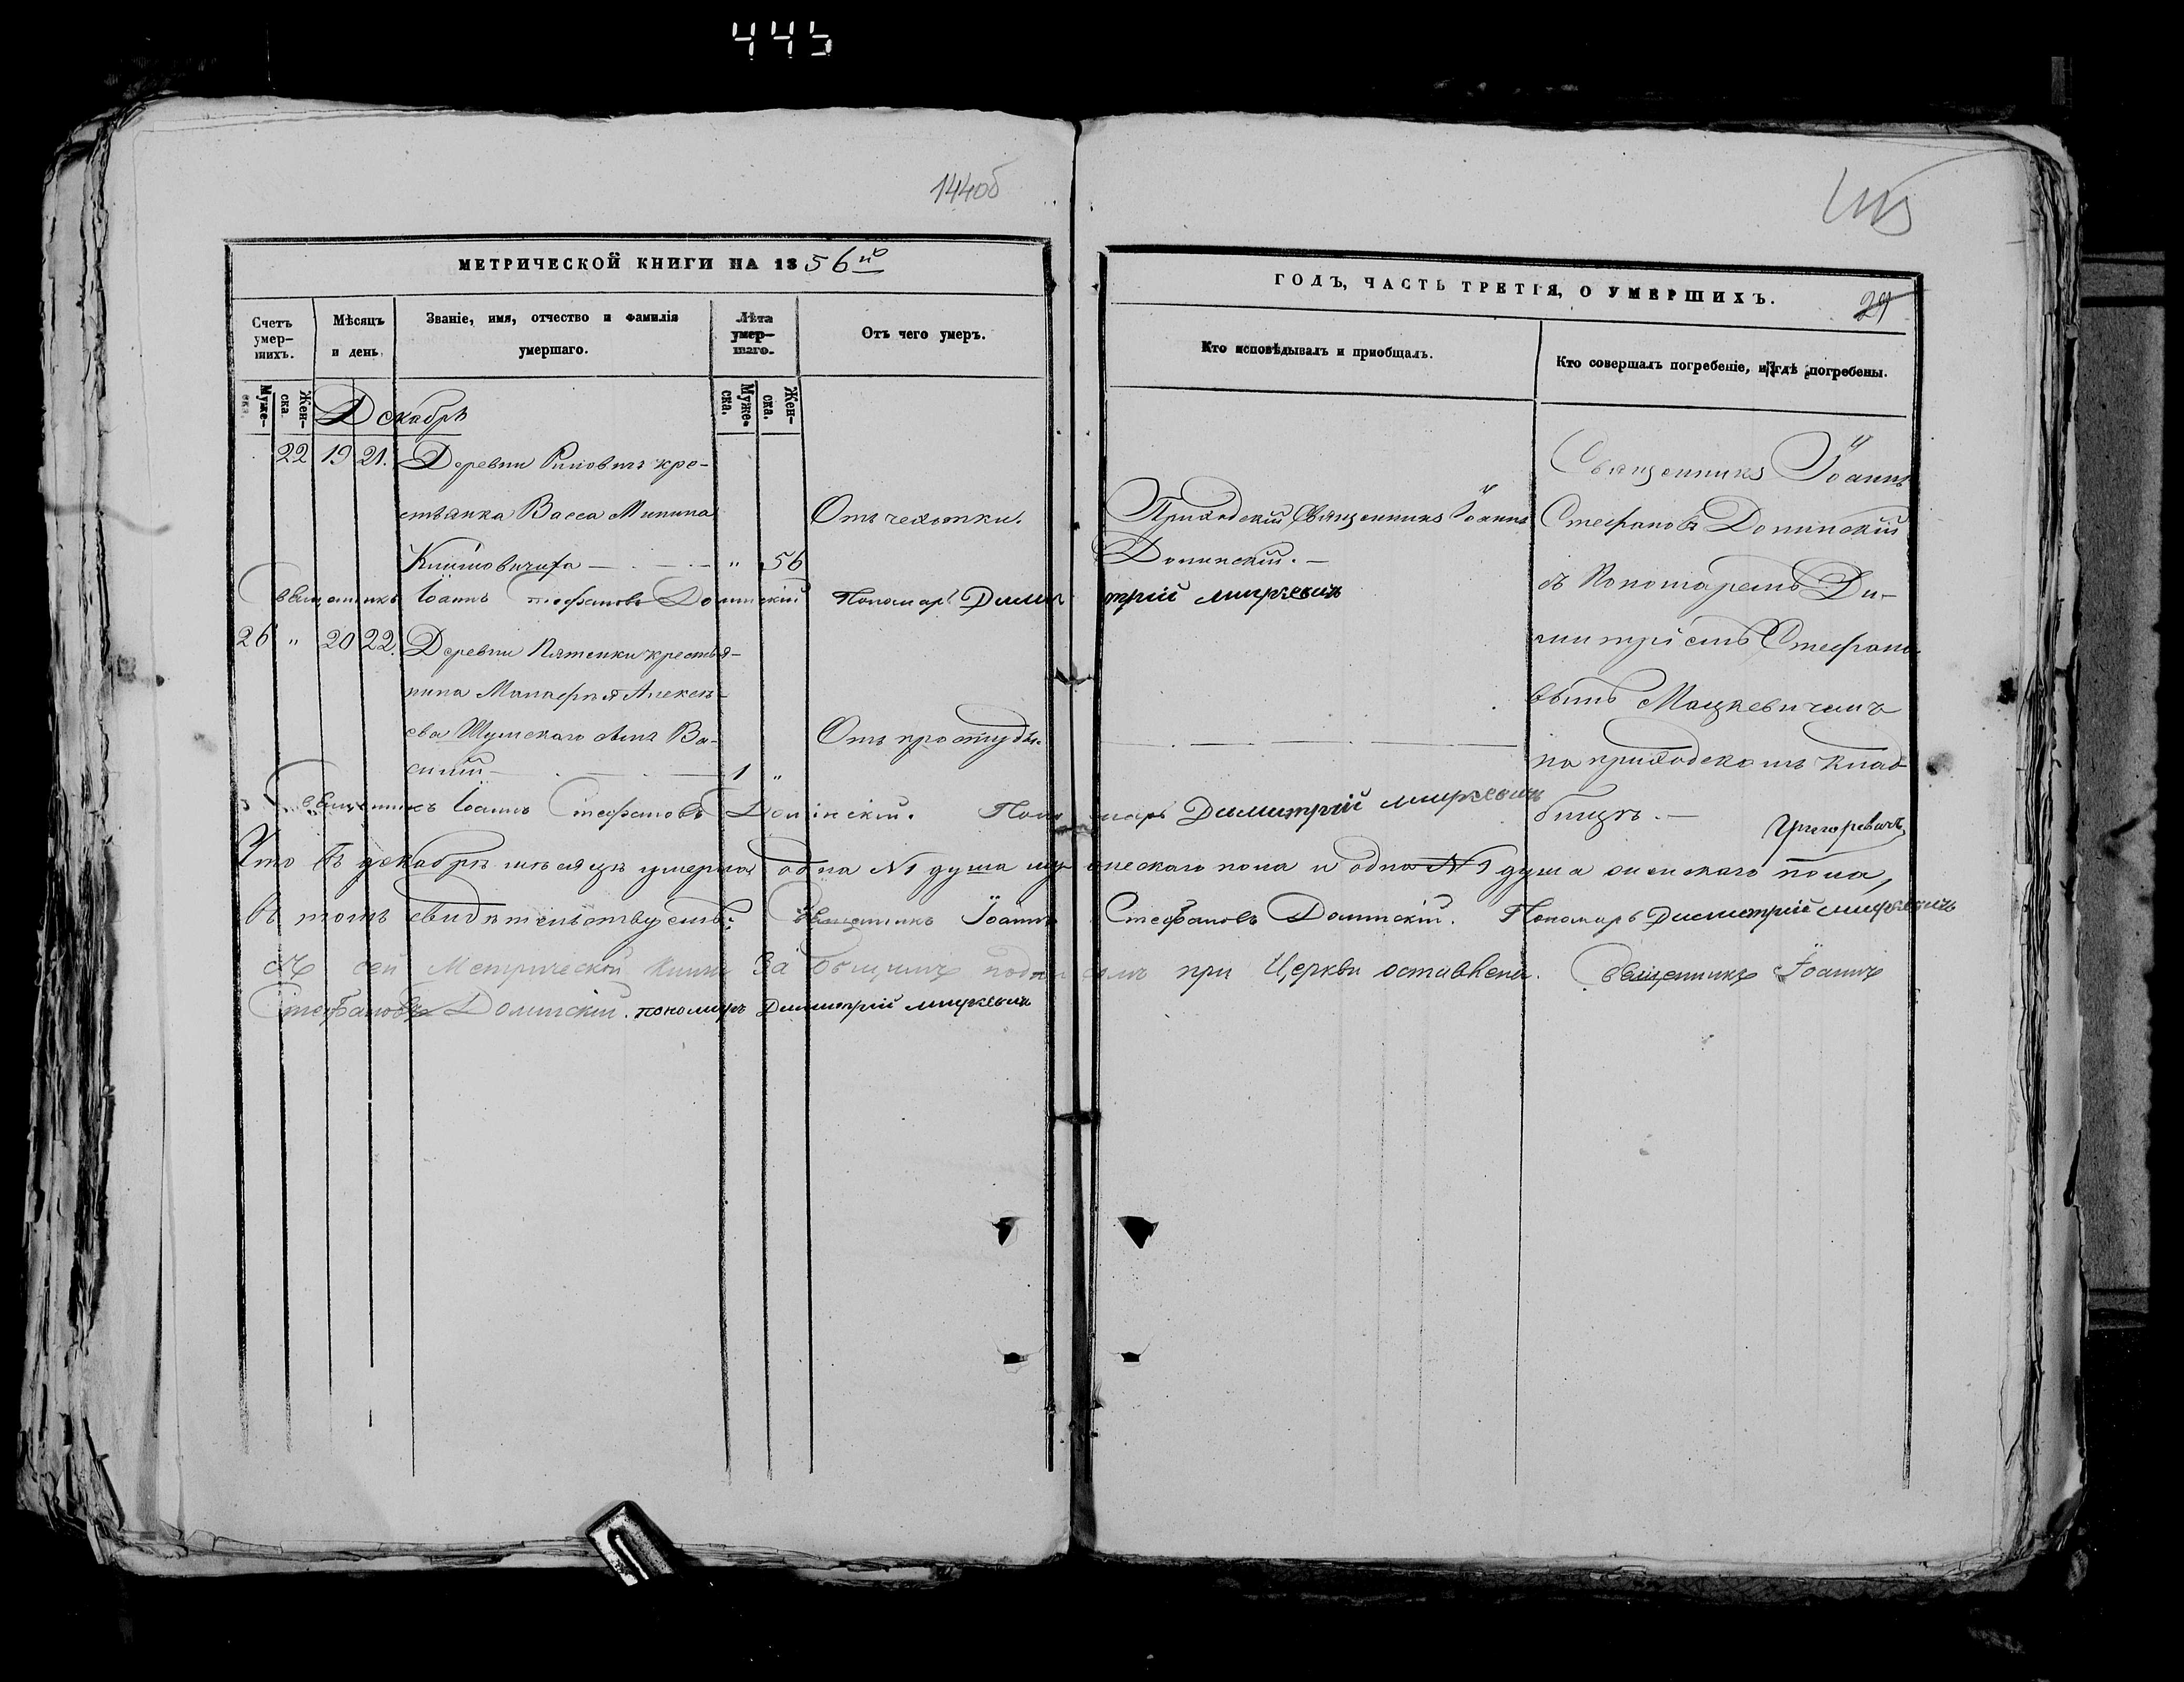 445
144об
145
МЕТРИЧЕСКОЙ КНИГИ НА 1856й
ГОДЪ, ЧАСТЬ ТРЕТІЯ, О УМЕРШИХЪ.
29
Счетъ умер-шихъ.
Мѣсяцъ и день.
Званіе, имя, отчество и фамилія умершаго.
Лѣта умер-шаго.
Отъ чего умеръ.
Кто исповѣдывалъ и приобщалъ.
Кто совершалъ погребеніе, и гдѣ погребены.
Муже-ска.
Жен-ска.
Муже-ска.
Жен-ска.
Декабрь
22 19 21. Деревни кре-
стьянка Васса Минина
" 56
Отъ чехотки.
Приходскій Священникъ Іоаннъ
Долинскій. —
Священникъ Іоаннъ Стефановъ Долинскій Пономарь Димитрій
26 " 20 22. Деревни Пятенки крестья-
нина Манафея Алексѣ-
ева Шумскаго сынъ Ва-
силій — 1 "
Отъ простуды.
Священникъ Іоаннъ
Стефановъ Долинскій
съ Пономаремъ Ди-
митріемъ Стефано-
вымъ Мацкевичемъ
на приходскомъ клад-
бищѣ. —
Священникъ Іоаннъ Стефановъ Долинскій. Пономарь Димитрій
Что въ декабрѣ мѣсяцѣ умерла одна №1 душа мужескаго пола и одна №1 душа женскаго пола,
въ томъ свидѣтельствуемъ: Священникъ Іоаннъ Стефановъ Долинскій. Пономарь Димитрій
Съ сей Метрической Книги за подписомъ при Церкви оставлена. Священникъ Іоаннъ
Стефановъ Долинскій. пономарь Димитрій